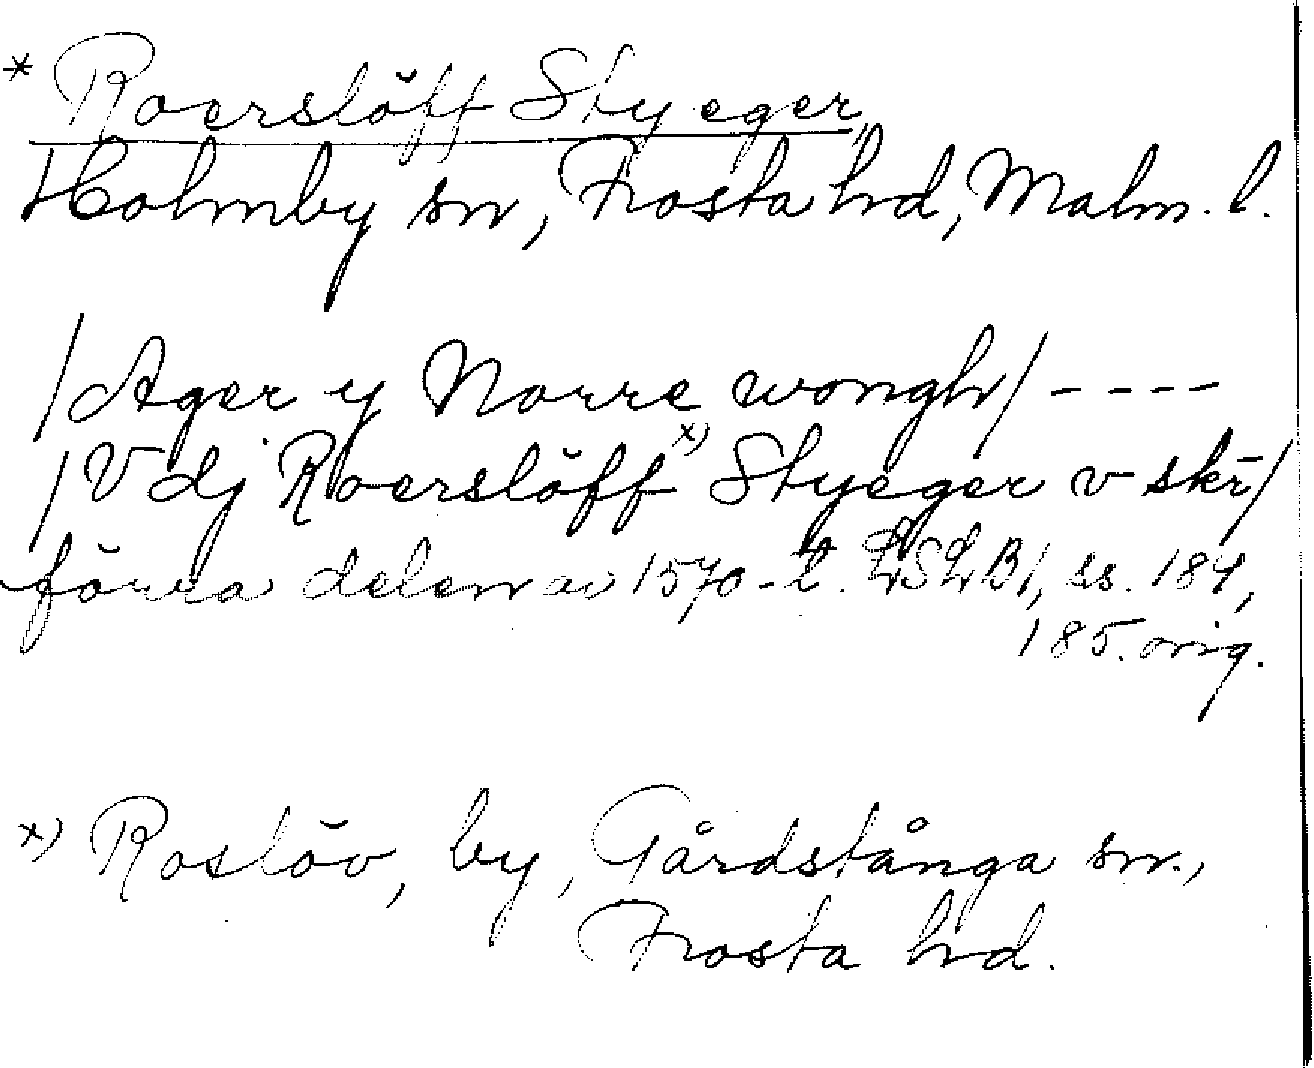 * Roerslöff Styeger,
Holmby sn, Frosta hrd, Malm. l.
/Ager y Norre wongh/ ----
/Vdj Roerslöff x) Styeger v skr/
förra delen av 1570-t. LSLB1, ss. 184,
185. orig.
x) Roslöv, by, Gårdstånga sn.,
Frosta hrd.